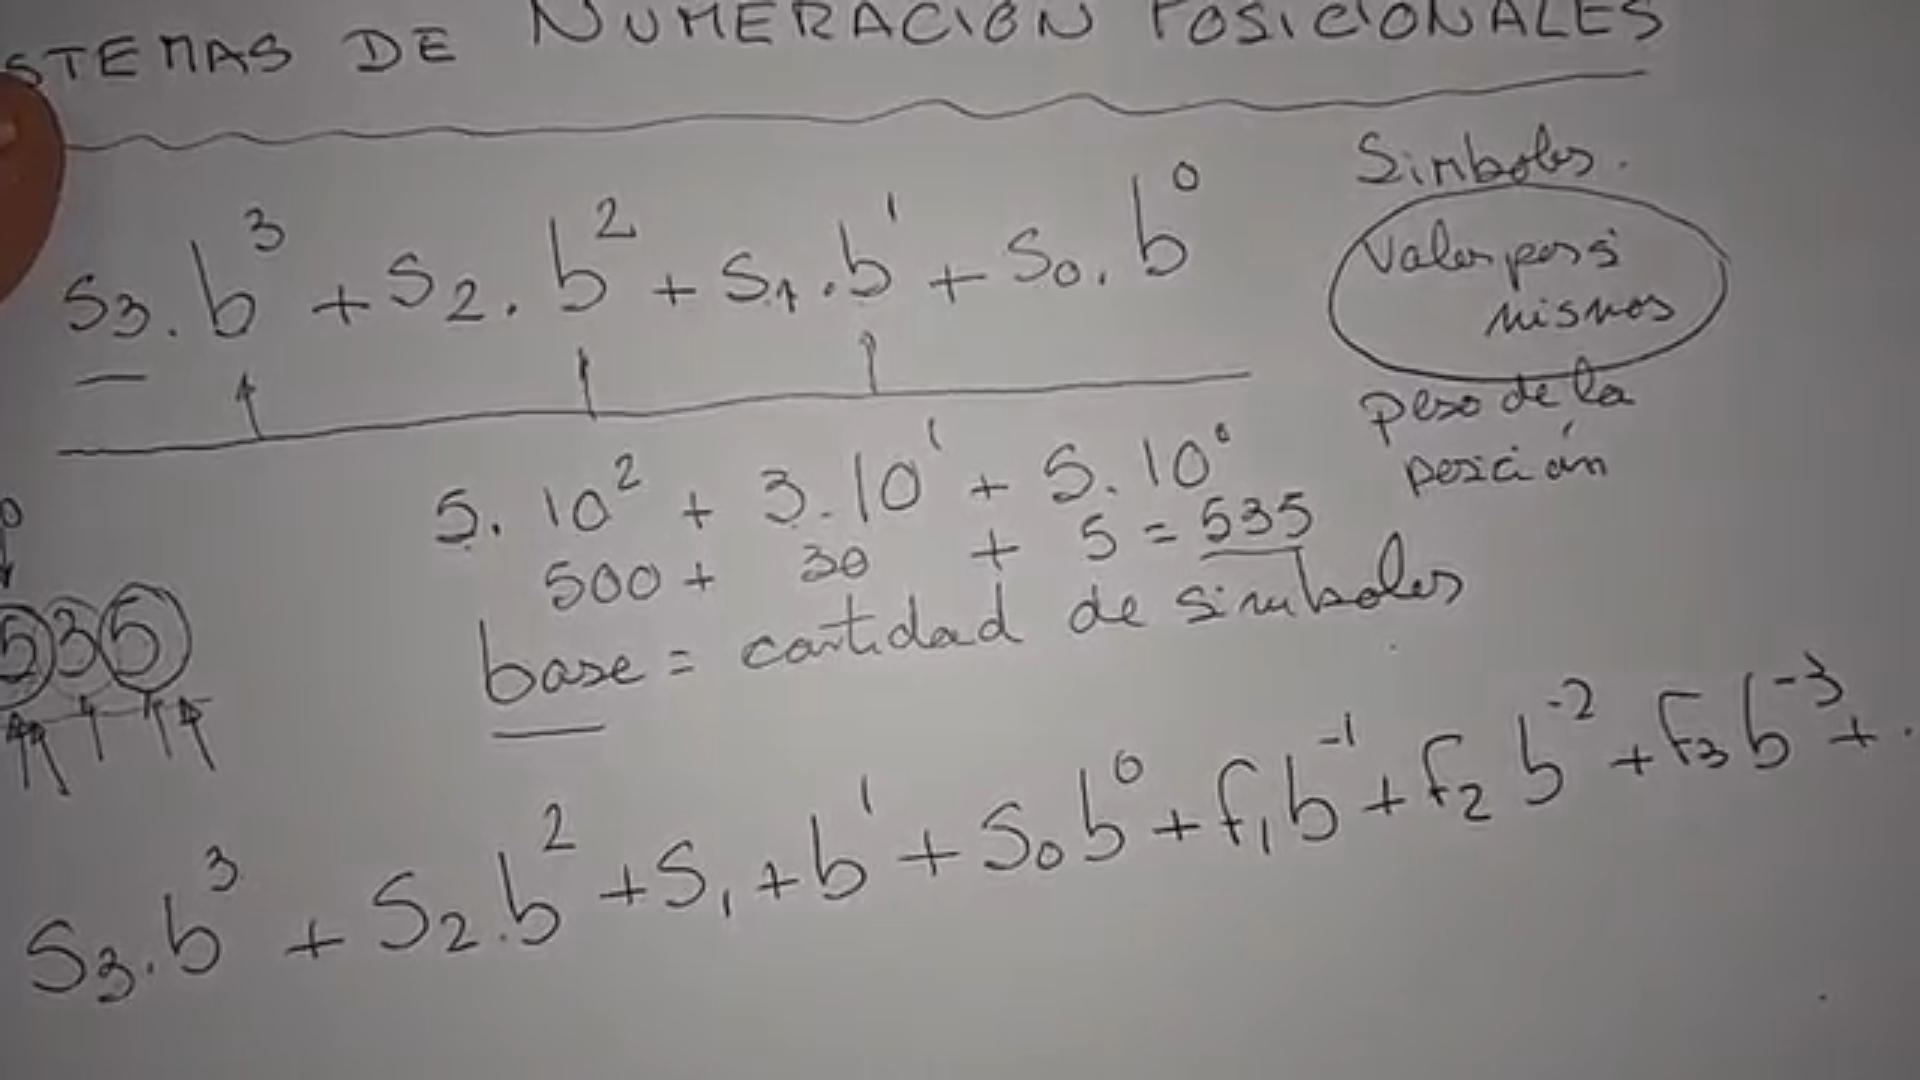 STEMAS DE NUMERACION POSICIONALES
S3.b³ + S2.b² + S1.b¹ + S0.b⁰
Simbolos.
Valor por si
mismos
peso de la
posición
5.10² + 3.10¹ + 5.10⁰
500 + 30 + 5 = 535
base = cantidad de simbolos
535
S3.b³ + S2.b² + S1 + b¹ + S0b⁰ + f1b⁻¹ + f2b⁻² + f3b⁻³ + .